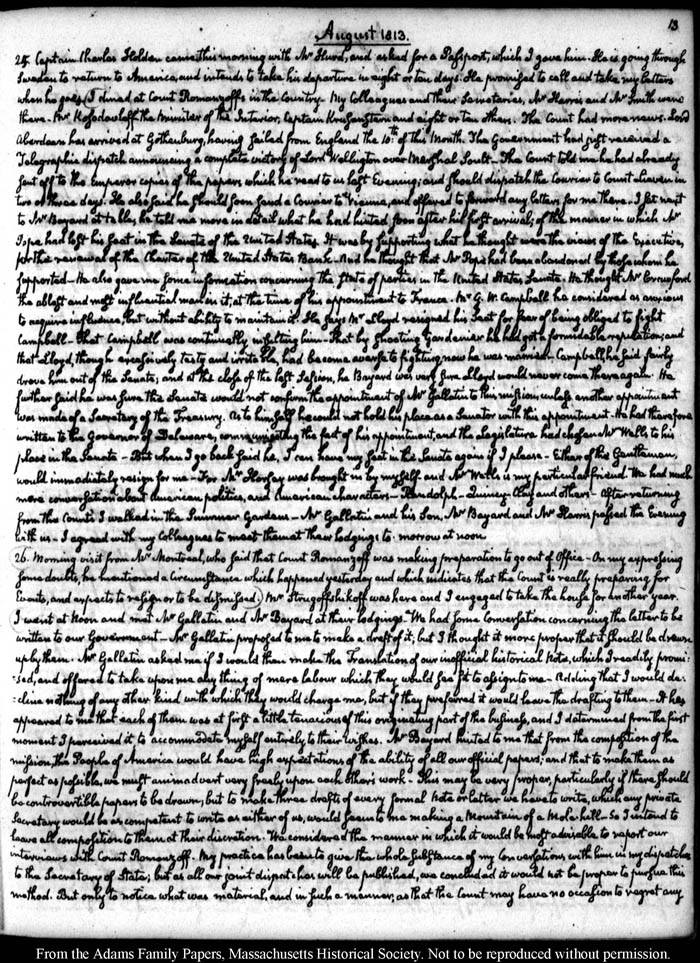 13
August 1813.
25. Captain Charles Holden came this morning with Mr Hurd, and asked for a Passport, which I gave him. He is going through
Sweden to return to America, and intends to take his departure in eight or ten days. He promised to call and take my letters
when he goes. I dined at Count Romanzoff's in the Country. My Colleagues and their Secretaries, Mr Harris and Mr Smith were
there. Mr Kosodavloff the Minister of the Interior, Captain Krusenstern and eight or ten others. The Count had more news. Lord
Aberdeen has arrived at Gothenburg, having sailed from England the 10th of this Month. The Government had just received a
Telegraphic dispatch announcing a complete victory of Lord Wellington over Marshal Soult. The Count told me he had already
sent off to the Emperor copies of the papers which he read to us last Evening; and should dispatch the Courier to Count Lieven in
two or three days. He also said he should soon send a Courier to Vienna, and offered to forward any letters for me there. I sat next
to Mr Bayard at table; he told me more in detail what he had hinted soon after his first arrival; of the manner in which Mr
Pope had lost his Seat in the Senate of the United States. It was by supporting what he thought were the views of the Executive,
for the renewal of the Charter of the United States Bank. And he thought that Mr Pope had been abandoned by those whom he
supported. He also gave me some information concerning the state of parties in the United States Senate. He thought Mr Crawford
the ablest and most influential man in it, at the time of his appointment to France. Mr G. W. Campbell he considered as anxious
to acquire influence, but without ability to maintain it. He says Mr Lloyd resigned his Seat for fear of being obliged to fight
Campbell. That Campbell was continually insulting him. That by shooting Gardenier he had got a formidable reputation; and
that Lloyd, though excessively testy and irritable, had become averse to fighting now he was married. Campbell, he said fairly
drove him out of the Senate; and at the close of the last Session, he Bayard was very sure Lloyd would never come there again. He
further said he was sure the Senate would not confirm the appointment of Mr Gallatin to this mission, unless another appointment
was made of a Secretary of the Treasury. As to himself he could not hold his place as a Senator with this appointment. He had therefore
written to the Governor of Delaware, communicating the fact of his appointment, and the Legislature had chosen Mr Wells to his
place in the Senate. But when I go back said he, I can have my seat in the Senate again if I please. Either of the Gentlemen,
would immediately resign for me. For Mr Horsey was brought in by myself and Mr Wells is my particular friend. We had much
more conversation about American politics, and American characters. Randolph. Quincy Clay and others. After returning
from the Count's I walked in the Summer Gardens. Mr Gallatin and his Son, Mr Bayard and Mr Harris passed the Evening
with us. I agreed with my Colleagues to meet them at their lodgings to-morrow at noon.
26. Morning visit from Mr Montreal, who said that Count Romanzoff was making preparation to go out of Office. On my expressing
some doubts, he mentioned a circumstance which happened yesterday and which indicates that the Count is really preparing for
Events, and expects to resign or to be dismissed. Mr Strogofshikoff was here and I engaged to take the house for another year.
I went at Noon and met Mr Gallatin and Mr Bayard at their lodgings. We had some Conversation concerning the letter to be
written to our Government. Mr Gallatin proposed to me to make a draft of it, but I thought it more proper that it should be drawn
up by them. Mr Gallatin asked me if I would then make the Translation of our inofficial historical Note, which I readily promi-
:sed, and offered to take upon me any thing of mere labour which they would see fit to assign to me. Adding that I would de-
:cline nothing of any other kind with which they would charge me, but if they preferred it would leave the drafting to them. It has
appeared to me that each of them was at first a little tenacious of this originating part of the business, and I determined from the first
moment I perceived it to accommodate myself entirely to their wishes. Mr Bayard hinted to me that from the composition of the
mission, the People of America would have high expectations of the ability of all our official papers; and that to make them as
perfect as possible, we must animadvert very freely upon each other's work. This may be very proper, particularly if there should
be controvertible papers to be drawn; but to make three drafts of every formal Note or letter we have to write, which any private
Secretary would be as competent to write as either of us, would seem to me making a Mountain of a Mole-hill. So I intend to
leave all composition to them at their discretion. We considered the manner in which it would be most advisable to report our
interviews with Count Romanzoff. My practice has been to give the whole substance of my Conversations with him in my dispatches
to the Secretary of State; but as all our joint dispatches will be published, we concluded it would not be proper to pursue this
method. But only to notice what was material, and in such a manner, as that the Count may have no occasion to regret any
From the Adams Family Papers, Massachusetts Historical Society. Not to be reproduced without permission.